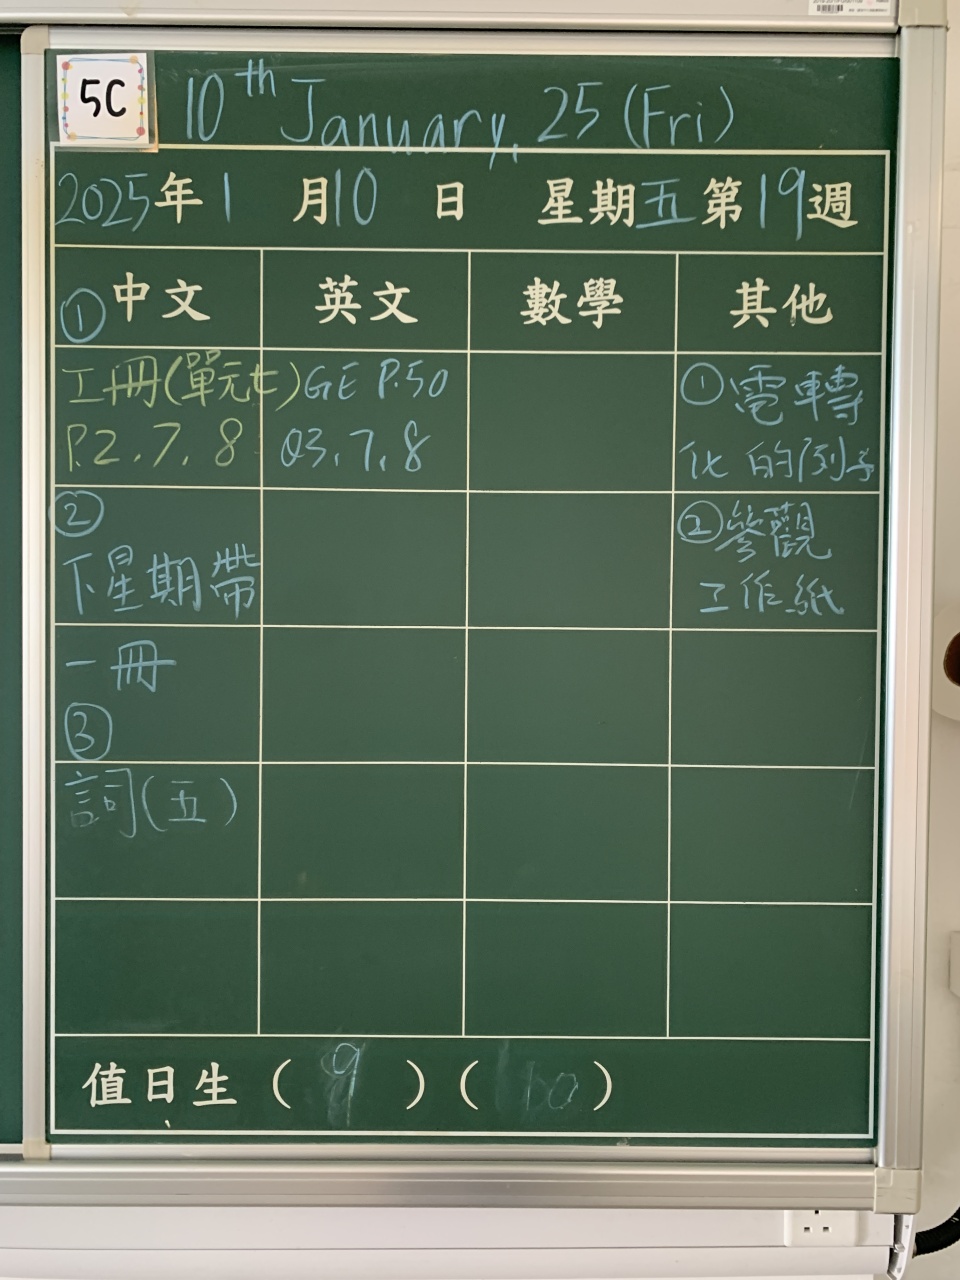 5C
10th January, 25 (Fri)
2025年1月10日 星期五第19週
①中文 英文 數學 其他
工冊(單元七) GE P.50 ①電轉
P.2、7、8 Q3、7、8 化的例子
② ②參觀
下星期帶 工作紙
一冊
③
詞(五)
值日生(9)(10)